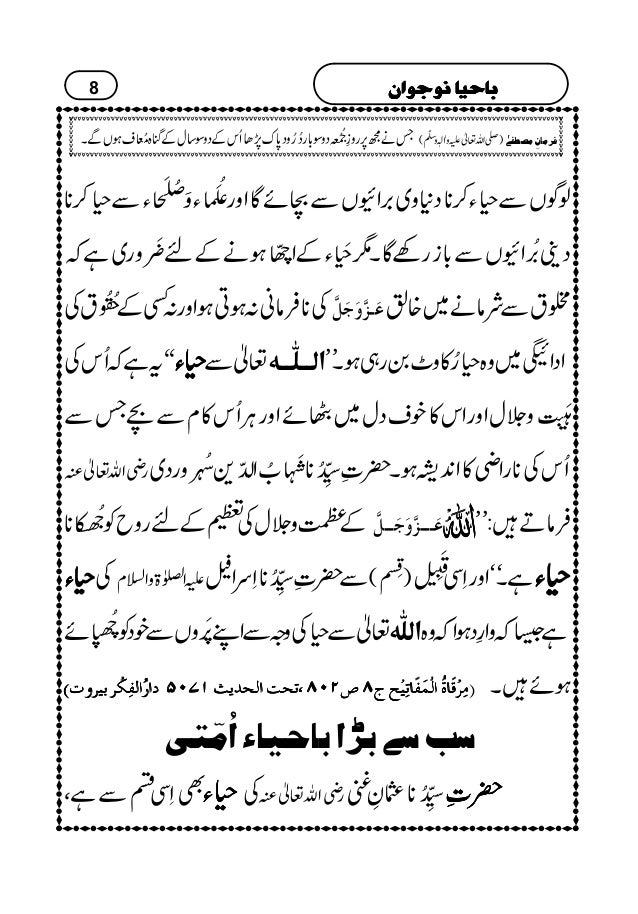 باحیا نوجوان
8
فرمانِ مصطفےٰ (صلی اللہ تعالیٰ علیہ والہٖ وسلّم) جس نے مجھ پر روزِ جُمُعہ دو سو بار دُرُود پاک پڑھا اُس کے دو سو سال کے گناہ مُعاف ہوں گے۔
لوگوں سے حیاء کرنا دنیاوی برائیوں سے بچائے گا اور عُلَماء وَصُلَحاء سے حیا کرنا
دینی بُرائیوں سے باز رکھے گا۔ مگر حَیاء کے اچّھا ہونے کے لئے ضَروری ہے کہ
مخلوق سے شرمانے میں خالق عَزَّوَجَلَّ کی نافرمانی نہ ہوتی ہو اور نہ کسی کے حُقُوق کی
ادائیگی میں وہ حیا رُکاوٹ بن رہی ہو۔ ’’اللّٰہ تعالیٰ سے حیاء‘‘ یہ ہے کہ اُس کی
ہَیبت وجلال اور اس کا خوف دل میں بٹھائے اور ہر اُس کام سے بچے جس سے
اُس کی ناراضی کا اندیشہ ہو۔ حضرتِ سیِّدُنا شَہابُ الدّین سُہروردی رضی اللہ تعالیٰ عنہ
فرماتے ہیں: ’’اللّٰہ عَزَّوَجَلَّ کے عظمت وجلال کی تعظیم کے لئے روح کو جُھکانا
حیاء ہے۔‘‘ اور اِسی قَبِیل (قِسم) سے حضرتِ سیِّدُنا اِسرافیل علیہ الصلوٰۃ والسلام کی حیاء
ہے جیسا کہ وارِد ہوا کہ وہ اللّٰہ تعالیٰ سے حیا کی وجہ سے اپنے پَروں سے خود کو چُھپائے
ہوئے ہیں۔ (مِرْقَاۃُ الْمَفَاتِیْح ج۸ ص۸۰۲، تحت الحدیث ۵۰۷۱ دارُالفِکْر بیروت)
سب سے بڑا باحیاء اُمّتی
حضرتِ سیِّدُنا عثمانِ غنی رضی اللہ تعالیٰ عنہ کی حیاء بھی اِسی قسم سے ہے،